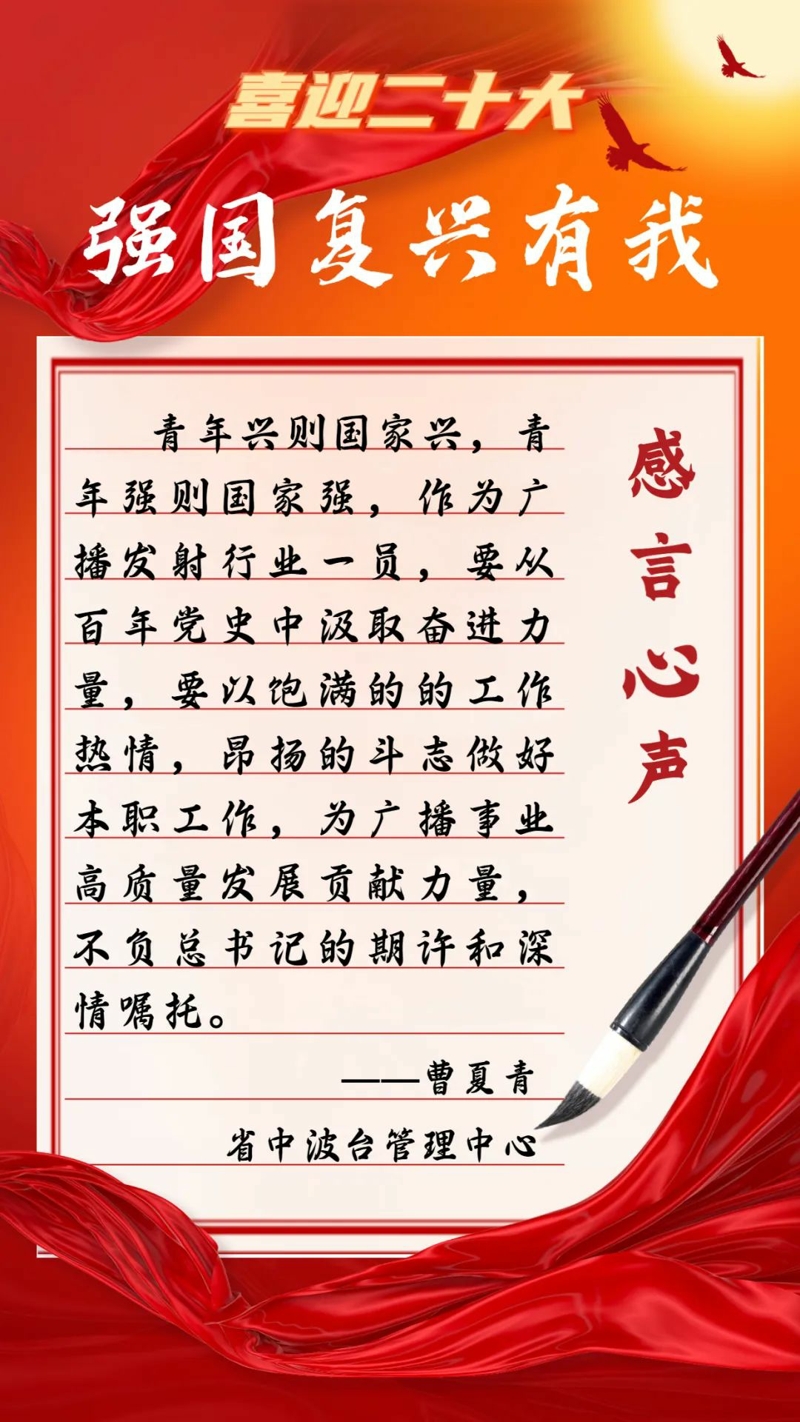 喜迎二十大
强国复兴有我
青年兴则国家兴，青
年强则国家强，作为广
播发射行业一员，要从
百年党史中汲取奋进力
量，要以饱满的的工作
热情，昂扬的斗志做好
本职工作，为广播事业
高质量发展贡献力量，
不负总书记的期许和深
情嘱托。
——曹夏青
省中波台管理中心
感言心声